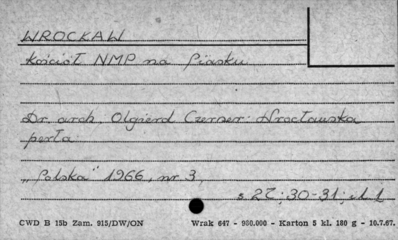 WROCŁAW
Kościół NMP na Piasku
Dr. arch. Olgierd Czerner: Wrocławska
perła
„Polska" 1966, nr 3,
s. 27; 30-31; il. 1
CWD B 15b Zam. 915/DW/ON Wrak 647 - 900.000 - Karton 5 kl. 180 g - 10.7.67.